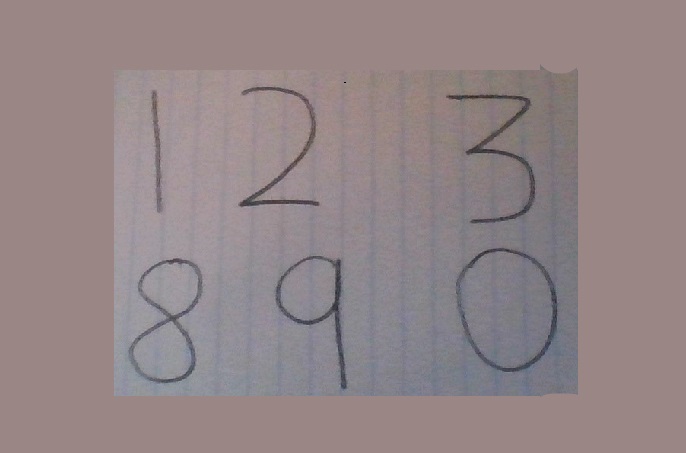 1 2 3
8 9 0